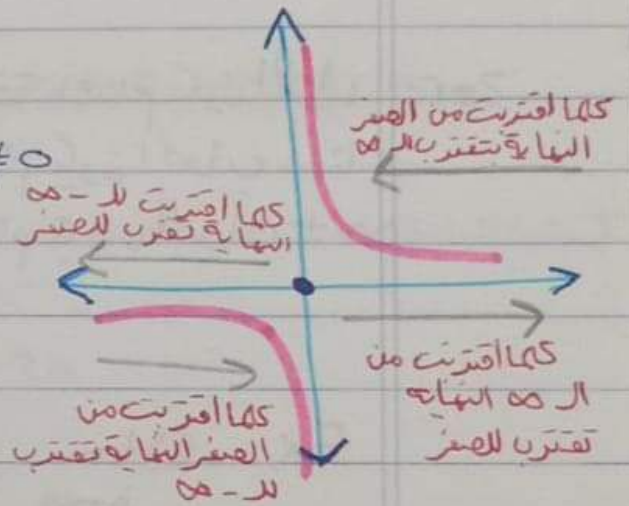 كلما اقتربت من الصفر
النهاية بتقترب الـ ∞
≠ 0
كلما اقتربت لـ - ∞
النهاية تقترب للصفر
كلما اقتربت من
الـ ∞ النهاية
تقترب للصفر
كلما اقتربت من
الصفر النهاية تقترب
لـ - ∞